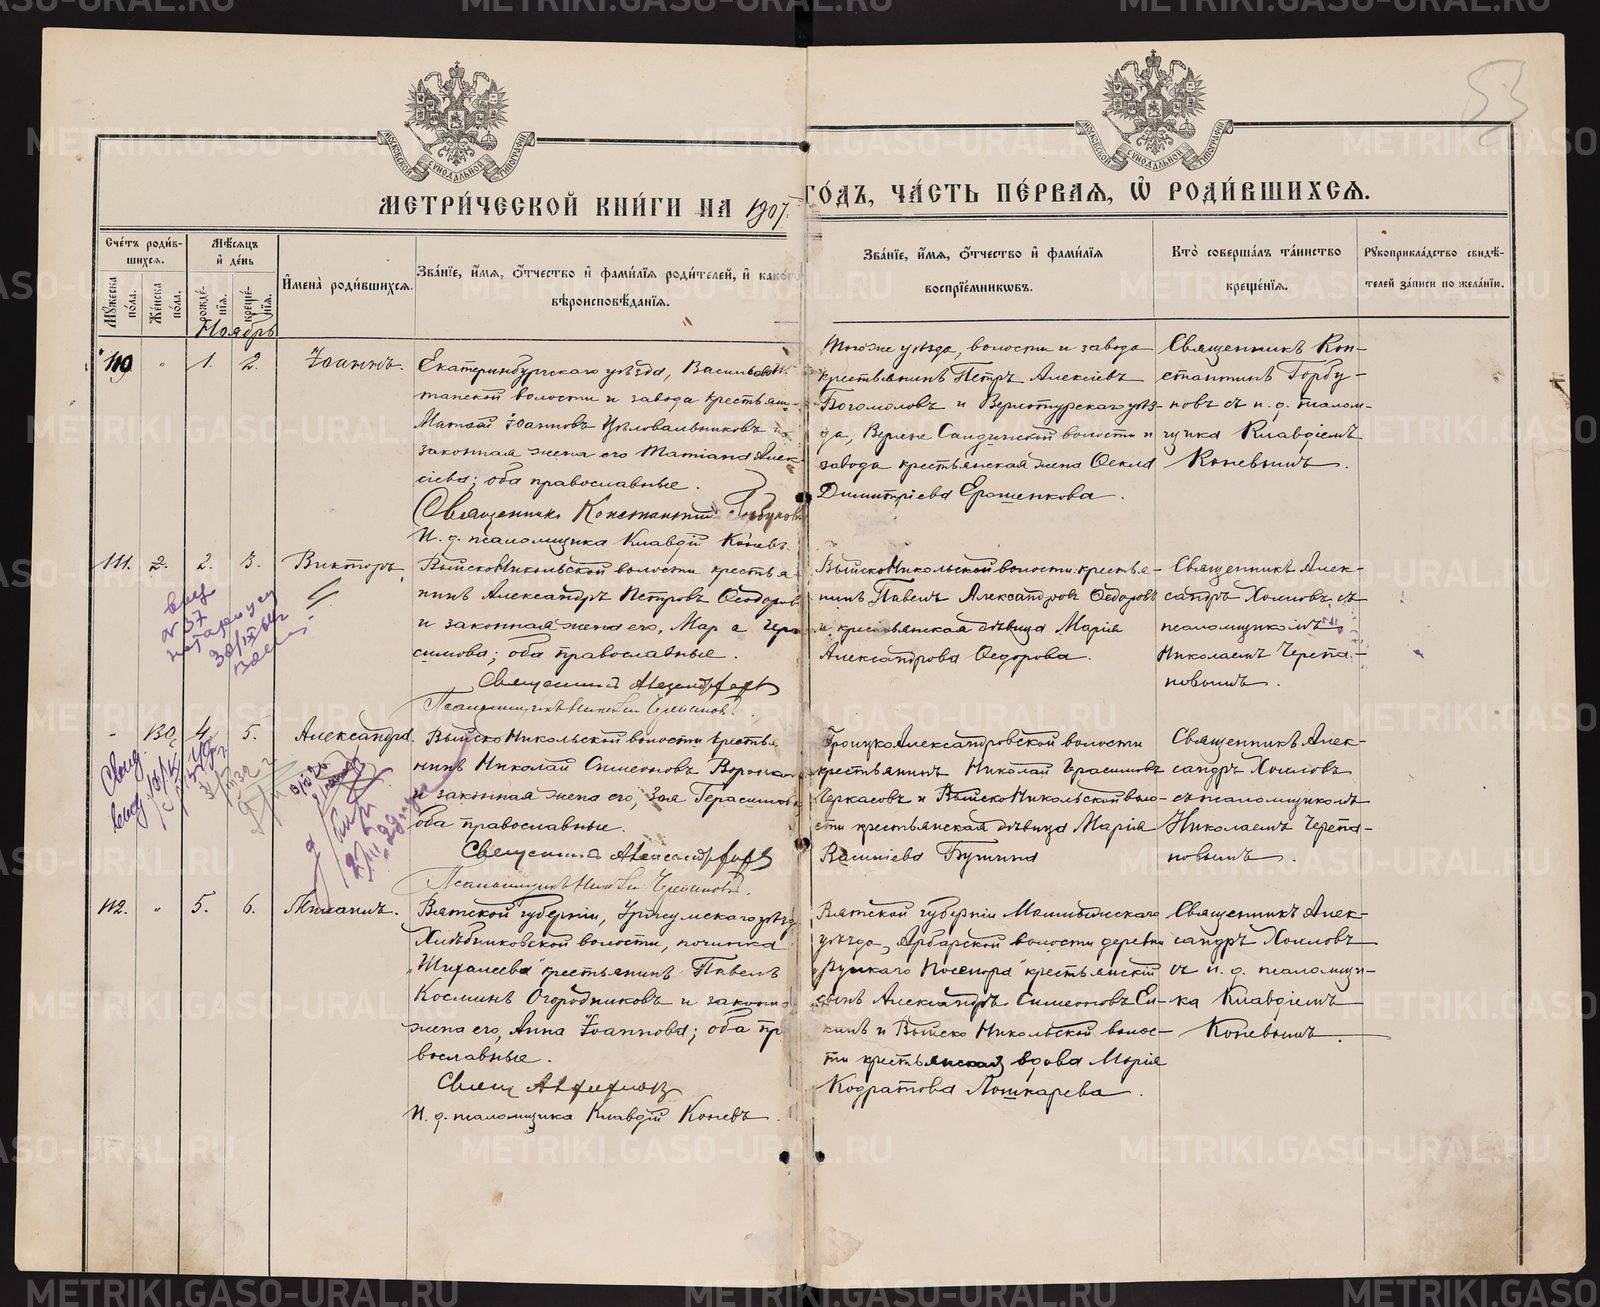 53
МОСКОВСКОЙ СѴНОДАЛЬНОЙ ТИПОГРАФІИ
МОСКОВСКОЙ СѴНОДАЛЬНОЙ ТИПОГРАФІИ
МЕТРИ́ЧЕСКОЙ КНИ́ГИ НА 1907 ГО́ДЪ, ЧА́СТЬ ПЕ́РВАЯ, Ѡ РОДИ́ВШИХСЯ.
Сче́тъ роди́в-
шихся.
Мꙋжеска по́ла.
Же́нска по́ла.
Мѣ́сяцъ и де́нь
рожде́-нїя.
креще́-нїя.
И҆мена̀ роди́вшихся.
Зва́нїе, и҆́мя, ѻ҆́тчество и҆ фами́лїя роди́телей, и҆ како́гѡ
вѣроисповѣ́данїя.
Зва́нїе, и҆́мя, ѻ҆́тчество и҆ фами́лїя
воспрїе́мникѡвъ.
Кто̀ соверша́лъ та́инство
креще́нїя.
Рꙋкоприкла́дство свидѣ́-
телей за́писи по жела́нїю.
Ноябрь
110 " 1. 2. Іоаннъ.
Екатеринбургскаго уѣзда, Васильевош.
танской волости и завода крестьян-
Матѳей Іоанновъ Цѣловальниковъ и
законная жена его Татіана Алек
сіева; оба православные.
Священникъ Константинъ Горбуновъ
И. д. псаломщика Клавдій Коневъ.
Тогоже уѣзда, волости и завода
крестьянинъ Петръ Алексіевъ
Богомоловъ и Верхотурскаго уѣз-
да, Верхне Салдинской волости и
завода крестьянская жена Ѳекла
Димитріева Ерошенкова.
Священникъ Кон-
стантинъ Горбу-
новъ съ и. д. псалом-
щика Клавдіемъ
Коневымъ.
111. 2. 3. Викторъ.
Выйско Никольской волости крестья-
нинъ Александръ Петровъ Ѳеодоровъ
и законная жена его, Марѳа Гера
симова; оба православные.
Священникъ Александръ
Псаломщикъ Николай Черепановъ.
Выйско Никольской волости: крестья-
нинъ Павелъ Александровъ Ѳедоровъ
и крестьянская дѣвица Марія
Александрова Ѳедорова.
Священникъ Алек-
сандръ Хохловъ съ
псаломщикомъ
Николаемъ Черепа-
новымъ.
- 130. 4. 5. Александра.
Выйско Никольской волости крестья
нинъ Николай Симеоновъ
и законная жена его, Зоя Герасимова
оба православные.
Священникъ Александръ
Псаломщикъ Николай Черепановъ.
Троицко Александровской волости
крестьянинъ Николай Герасимовъ
Черкасовъ и Выйско Никольской воло-
сти крестьянская дѣвица Марія
Василіева
Священникъ Алек-
сандръ Хохловъ
съ псаломщикомъ
Николаемъ Черепа-
новымъ.
112. " 5. 6. Михаилъ.
Вятской губерніи, Уржумскаго уѣзд
Хлѣбниковской волости, починка
„Шихалеева" крестьянинъ Павелъ
Косминъ Огородниковъ и законн
жена его, Анна Іоаннова; оба пр
вославные.
Свящ
И. д. псаломщика Клавдій Коневъ.
Вятской губерніи Малмыжскаго
уѣзда, Арборской волости деревни
„Русскаго " крестьянскій
сынъ Александръ Симеоновъ Ел-
кинъ и Выйско Никольской волос-
ти крестьянская вдова Марія
Кодратова Лошкарева.
Священникъ Алек-
сандръ Хохловъ
съ и. д. псаломщи-
ка Клавдіемъ
Коневымъ.